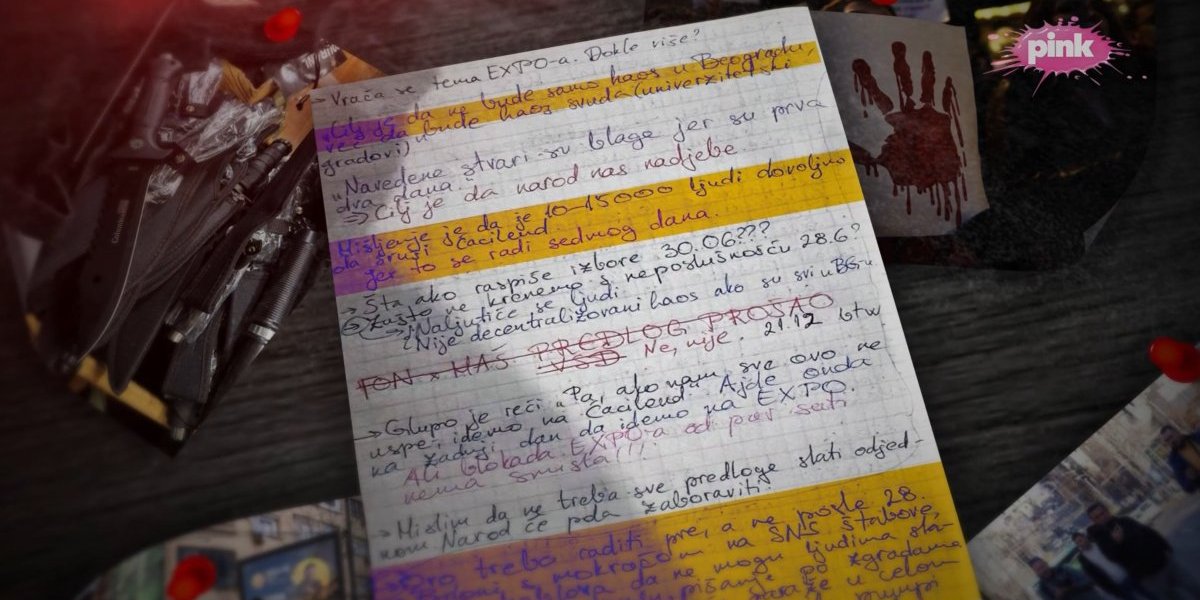 pink
→ Vraća se tema EXPO-a. Dokle više?
"Cilj je da ne bude samo haos u Beogradu,
već da bude haos svuda (univerzitetski
gradovi)
"Navedene stvari su blage jer su prva
dva dana."
⇒ Cilj je da narod nas nadjebe
Mišljenje je da je 10-15000 ljudi dovoljno
da sruši Ćacilend
jer to se radi sedmog dana.
→ Šta ako raspiše izbore 30.06???
Zašto ne krenemo s neposlušnošću 28.6?
→ Naljutiće se ljudi
Nije decentralizovani haos ako su svi u BG-u
FON x MAŠ PREDLOG PROŠAO
VSD Ne, nije. 21.12 btw.
→ Glupo je reći "Pa, ako nam sve ovo ne
uspe, idemo na Ćacilend". Ajde onda
na zadnji dan da idemo na EXPO.
Ali blokada EXPO-a od par sati
nema smisla!!!
→ Mislim da ne treba sve predloge slati odjed-
nom. Narod će pola zaboraviti.
Ovo treba raditi pre, a ne posle 28.
s mokraćom na SNS štabove,
da ne mogu ljudima sla-
pisanje po zgradama
straže u celom